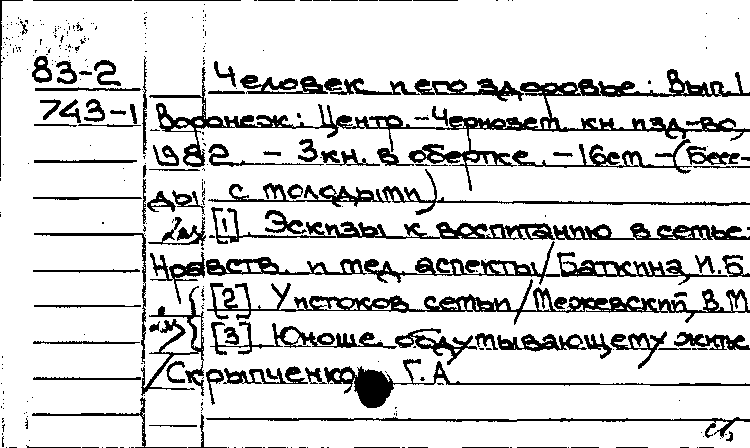 83-2 Человек и его здоровье: Вып. 1
743-1 Воронеж: Центр.-Чернозем. кн. изд-во,
1982. - 3 кн. в обертке. - 16 см. - (Бесе-
ды с молодыми).
2 экз [1]. Эскизы к воспитанию в семье:
Нравств. и мед. аспекты / Баткина, И.Б.
[2]. У истоков семьи / Межевский, В.М
[3]. Юноше обдумывающему житье
/ Скрыпченко, Г.А.